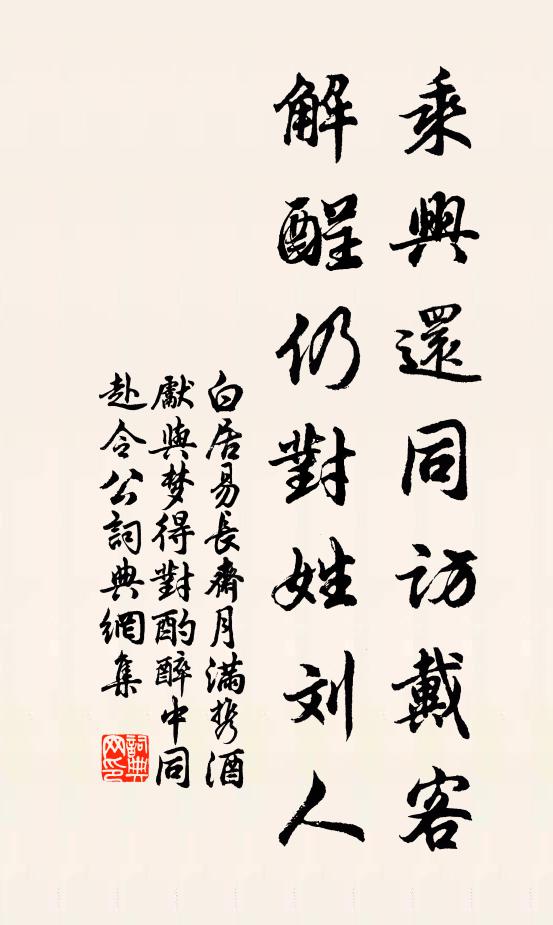 乘興還同訪戴客
解酲仍對姓刘人
白居易長齋月满携酒
獻與梦得對酌醉中同
赴令公詞典網集
詞典网印